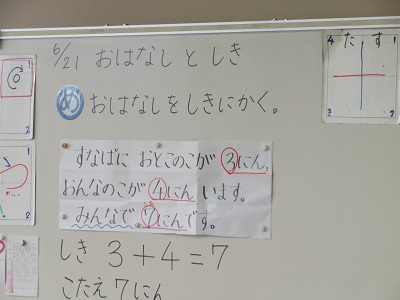 6/21 おはなし と しき
め おはなしをしきにかく。
すなばに おとこのこが 3にん、
おんなのこが 4にん います。
みんなで 7にんです。
しき 3+4=7
こたえ 7にん
たす